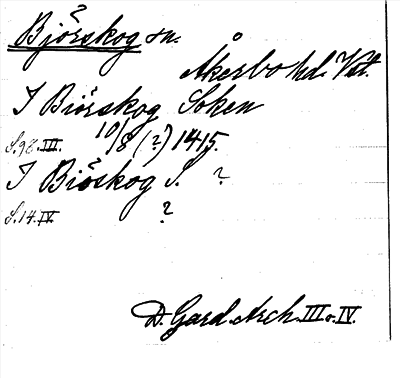 Björskog sn.
Åkerbo hd. Vstm.
I Biörskog Soken
S. 98. III. 10/8 (?) 1415.
I Biöskog S. ?
S. 14. IV. ?
D. Gard. Arch. III o. IV.